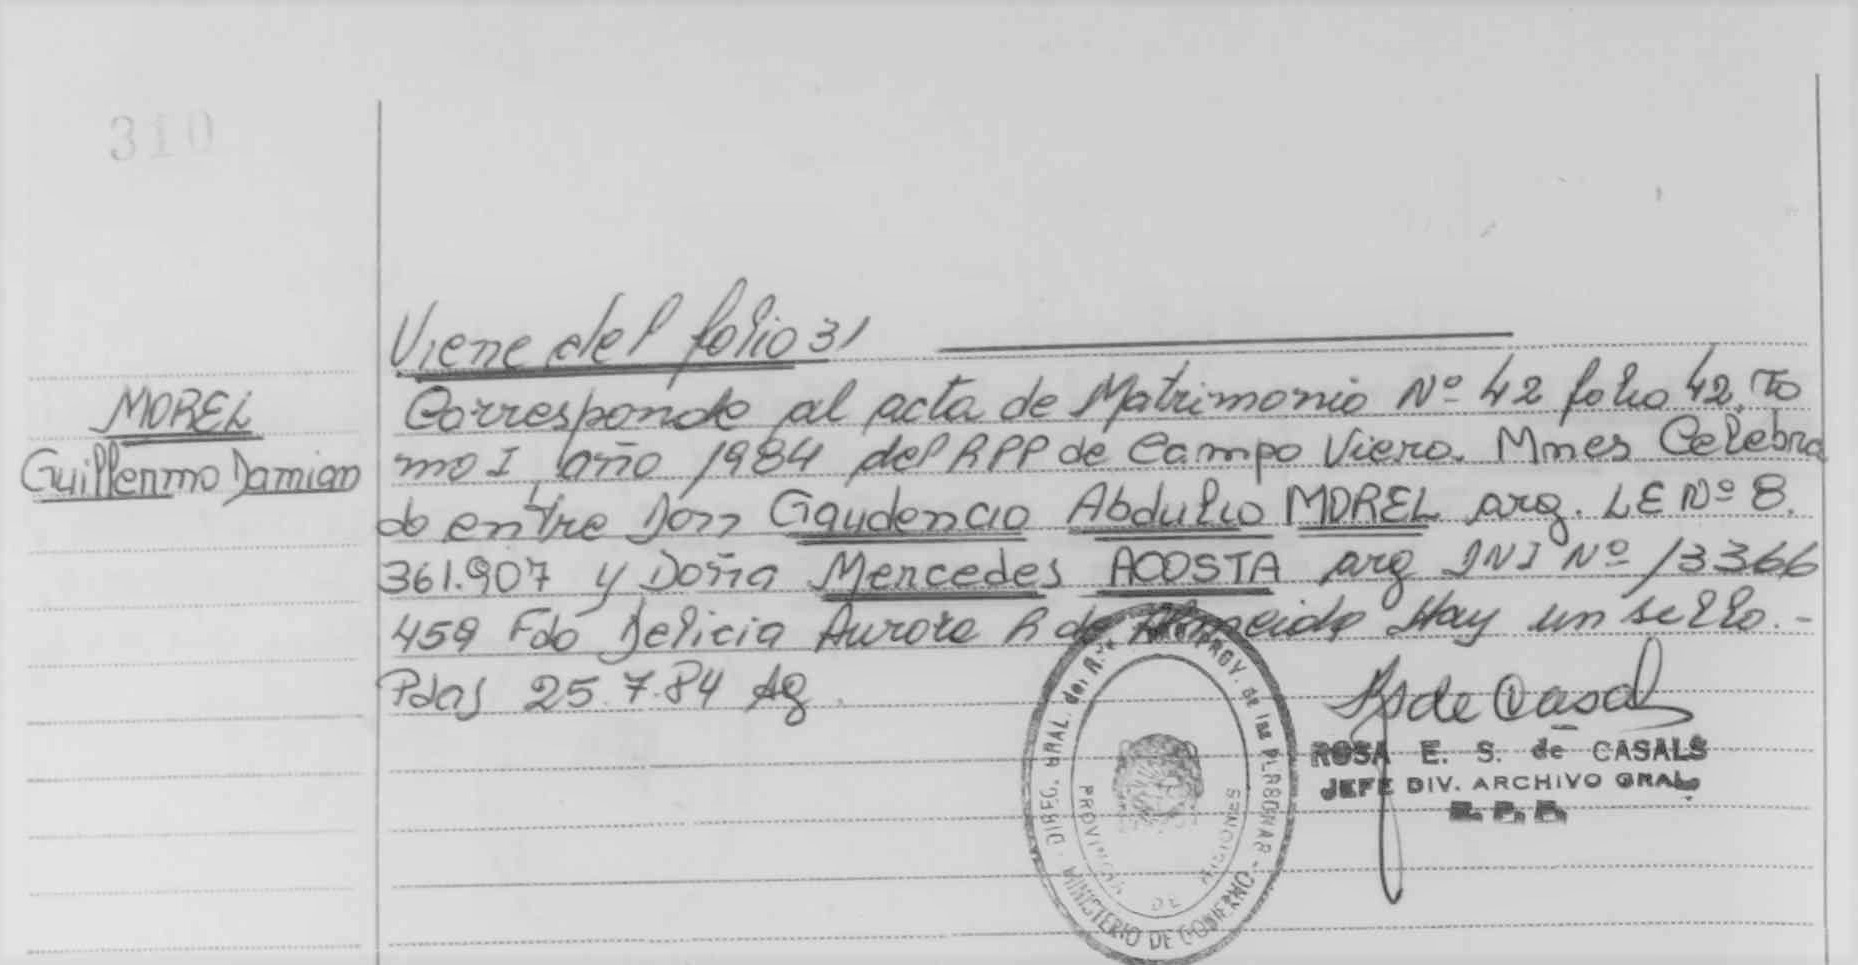 310
Viene del folio 31
MOREL
Guillermo Damian
Corresponde al acta de Matrimonio Nº 42 folio 42. To
mo I año 1984 del RPP de Campo Viera. Mnes Celebra
do entre Don Gaudencio Abdulio MOREL arg. LE Nº 8.
361.907 y Doña Mercedes ACOSTA arg DNI Nº 13366
459 Fdo Delicia Aurora R de Almeida Hay un sello.-
Pdas 25.7.84 Ag.
DIREC. GRAL. del R. PROV. de las PERSONAS
MINISTERIO DE GOBIERNO
PROVINCIA DE MISIONES
S de Casals
ROSA E. S. de CASALS
JEFE DIV. ARCHIVO GRAL.
R. P. P.